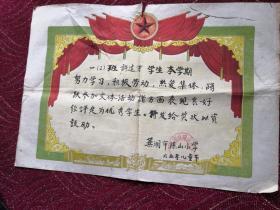 一(2)班 学生 本学期
努力学习，积极劳动，热爱集体，踊
跃参加文体活动诸方面表现良好
经评定为优秀学生。特发给奖状以资
鼓励。
芜湖市赭山小学
六五年儿童节